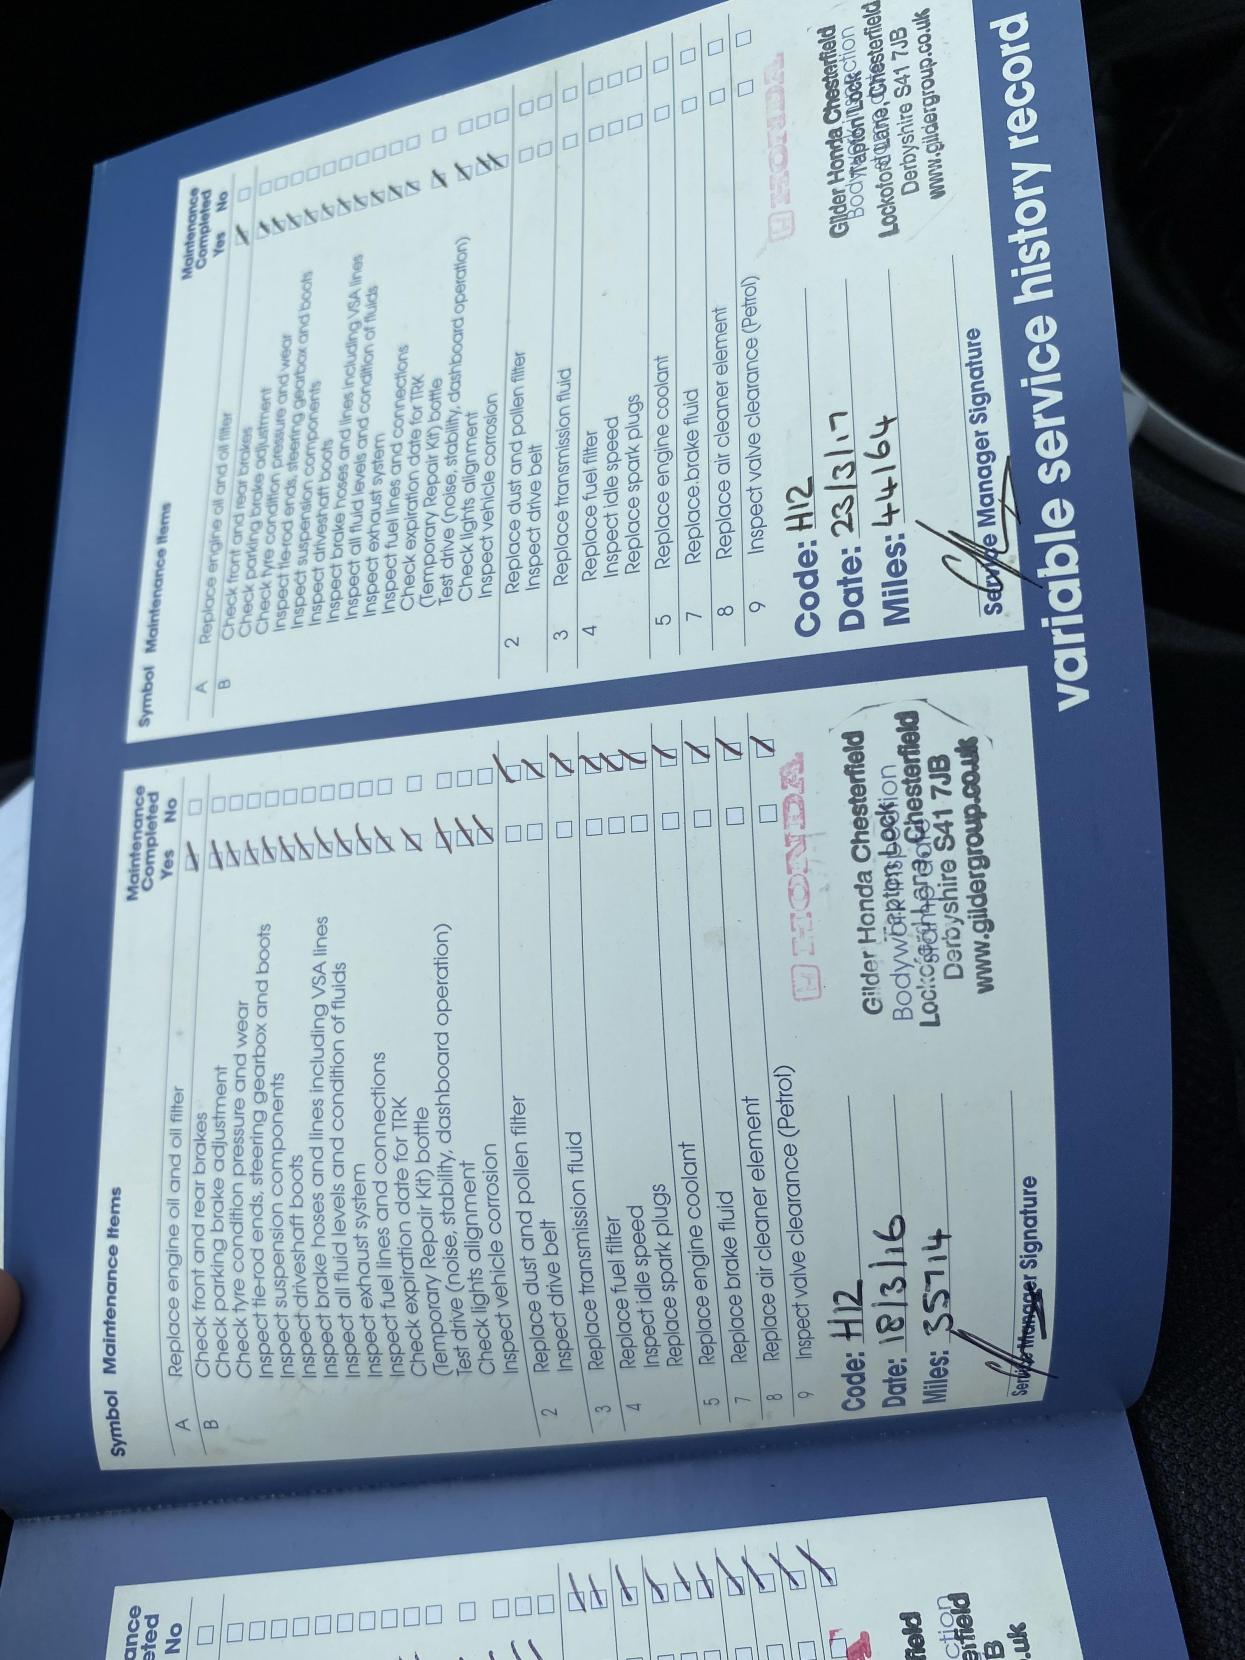 Symbol Maintenance Items
Maintenance
Completed
Yes No
A Replace engine oil and oil filter
B Check front and rear brakes
Check parking brake adjustment
Check tyre condition pressure and wear
Inspect tie-rod ends, steering gearbox and boots
Inspect suspension components
Inspect driveshaft boots
Inspect brake hoses and lines including VSA lines
Inspect all fluid levels and condition of fluids
Inspect exhaust system
Inspect fuel lines and connections
Check expiration date for TRK
(Temporary Repair Kit) bottle
Test drive (noise, stability, dashboard operation)
Check lights alignment
Inspect vehicle corrosion
2 Replace dust and pollen filter
Inspect drive belt
3 Replace transmission fluid
4 Replace fuel filter
Inspect idle speed
Replace spark plugs
5 Replace engine coolant
7 Replace brake fluid
8 Replace air cleaner element
9 Inspect valve clearance (Petrol)
HONDA
Code: H12
Date: 18/3/16
Miles: 35714
Gilder Honda Chesterfield
Derbyshire S41 7JB
www.gildergroup.co.uk
Service Manager Signature
Symbol Maintenance Items
Maintenance
Completed
Yes No
A Replace engine oil and oil filter
B Check front and rear brakes
Check parking brake adjustment
Check tyre condition pressure and wear
Inspect tie-rod ends, steering gearbox and boots
Inspect suspension components
Inspect driveshaft boots
Inspect brake hoses and lines including VSA lines
Inspect all fluid levels and condition of fluids
Inspect exhaust system
Inspect fuel lines and connections
Check expiration date for TRK
(Temporary Repair Kit) bottle
Test drive (noise, stability, dashboard operation)
Check lights alignment
Inspect vehicle corrosion
2 Replace dust and pollen filter
Inspect drive belt
3 Replace transmission fluid
4 Replace fuel filter
Inspect idle speed
Replace spark plugs
5 Replace engine coolant
7 Replace brake fluid
8 Replace air cleaner element
9 Inspect valve clearance (Petrol)
HONDA
Code: H12
Date: 23/3/17
Miles: 44164
Gilder Honda Chesterfield
Derbyshire S41 7JB
www.gildergroup.co.uk
Service Manager Signature
variable service history record
No